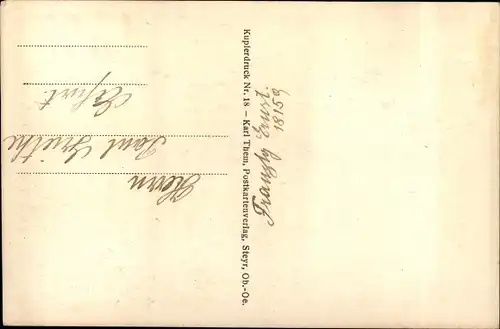 Herrn
Paul Griethe
Erfurt.
Kupferdruck Nr. 18 – Karl Them, Postkartenverlag, Steyr, Ob.-Oe.
18159